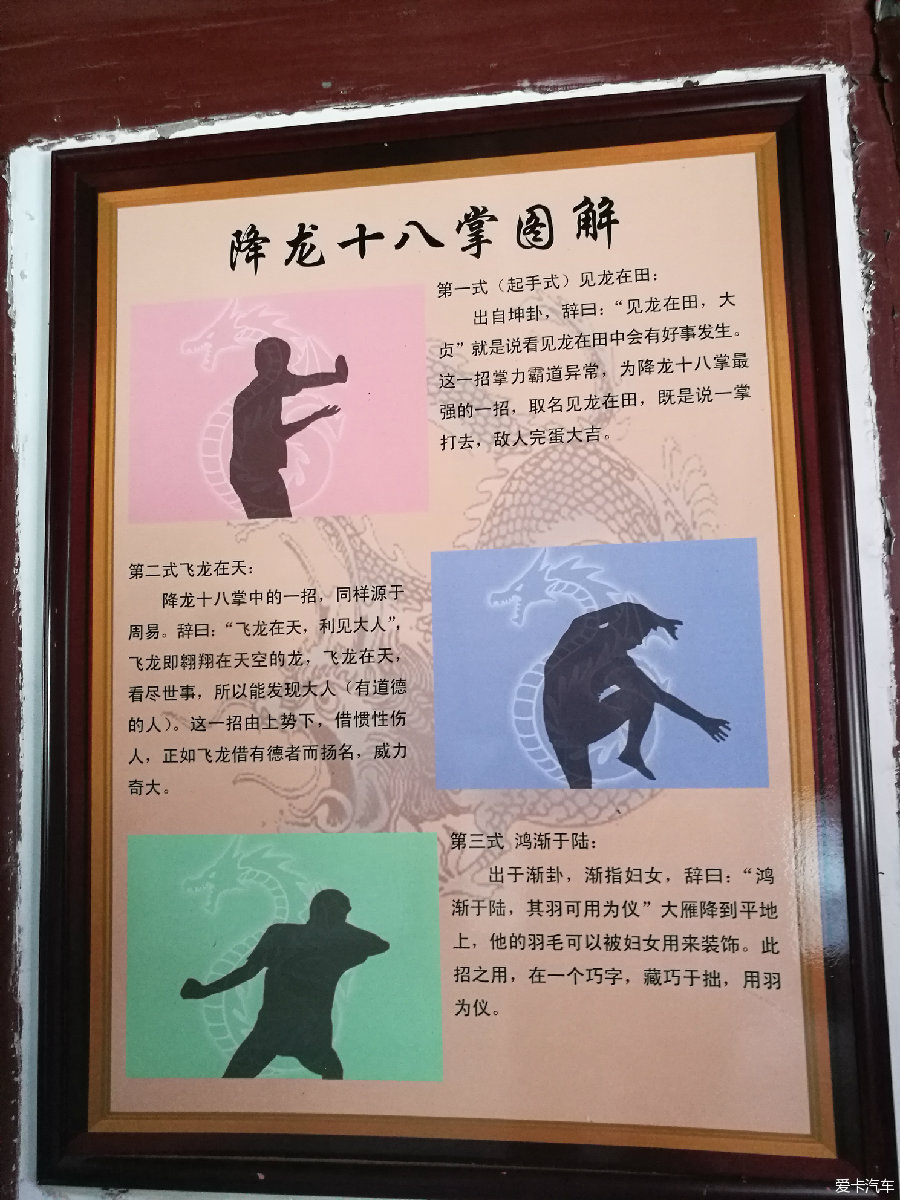 降龙十八掌图解
第一式（起手式）见龙在田：
出自坤卦，辞曰：“见龙在田，大
贞”就是说看见龙在田中会有好事发生。
这一招掌力霸道异常，为降龙十八掌最
强的一招，取名见龙在田，既是说一掌
打去，敌人完蛋大吉。
第二式飞龙在天：
降龙十八掌中的一招，同样源于
周易。辞曰：“飞龙在天，利见大人”，
飞龙即翱翔在天空的龙，飞龙在天，
看尽世事，所以能发现大人（有道德
的人）。这一招由上势下，借惯性伤
人，正如飞龙借有德者而扬名，威力
奇大。
第三式 鸿渐于陆：
出于渐卦，渐指妇女，辞曰：“鸿
渐于陆，其羽可用为仪”大雁降到平地
上，他的羽毛可以被妇女用来装饰。此
招之用，在一个巧字，藏巧于拙，用羽
为仪。
爱卡汽车